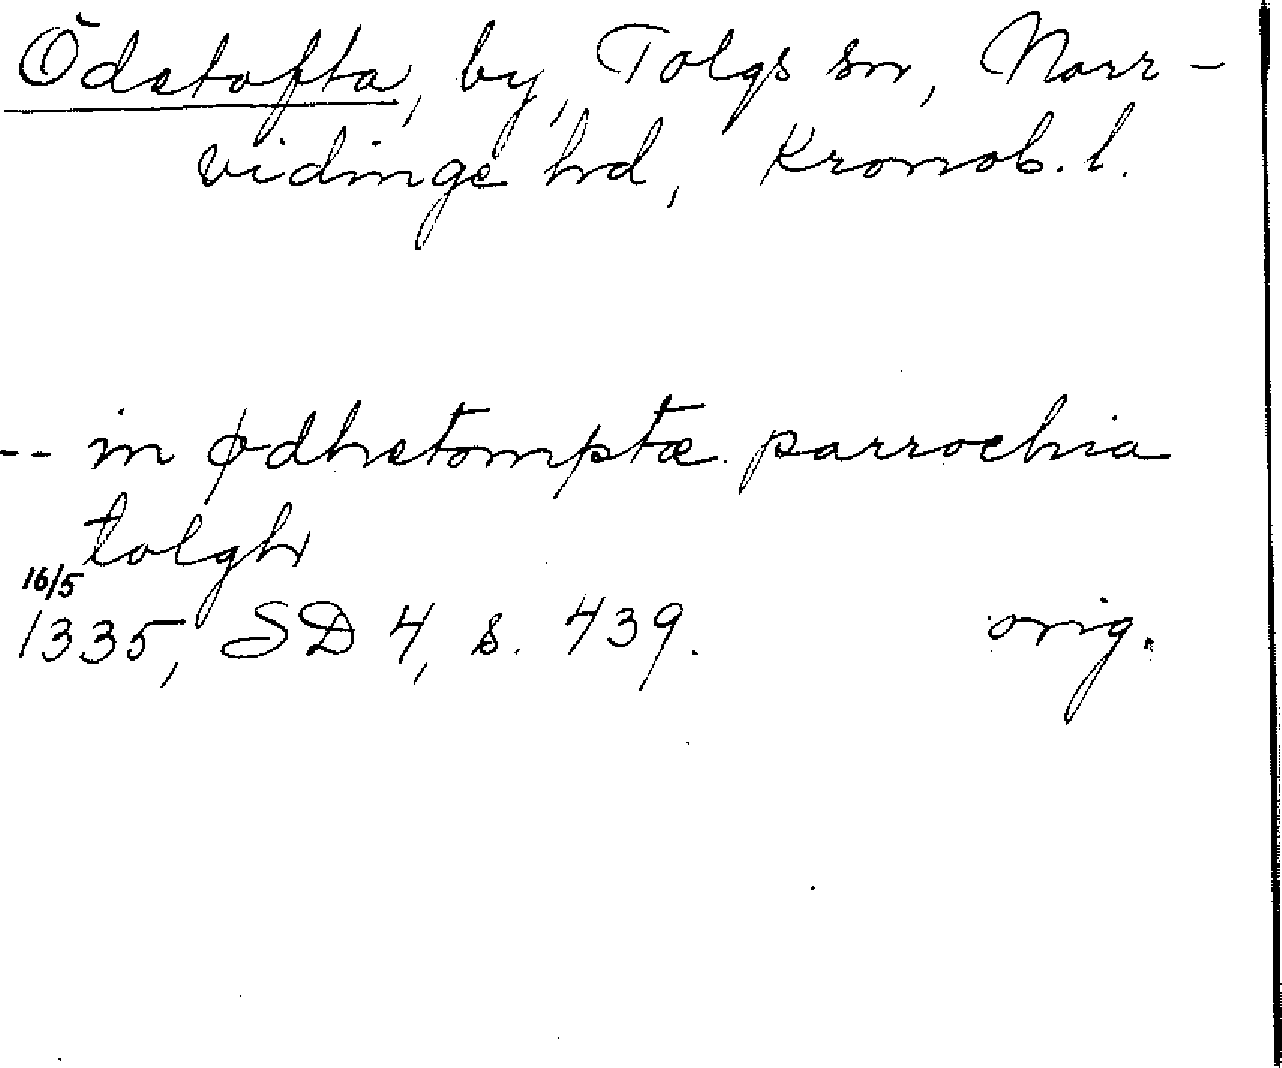 Ödetofta, by, Tolgs sn, Norr-
vidinge hd, Kronob. l.
-- in ødhetomptæ parrochia
tolgh
16/5
1335, SD 4, s. 439. orig.